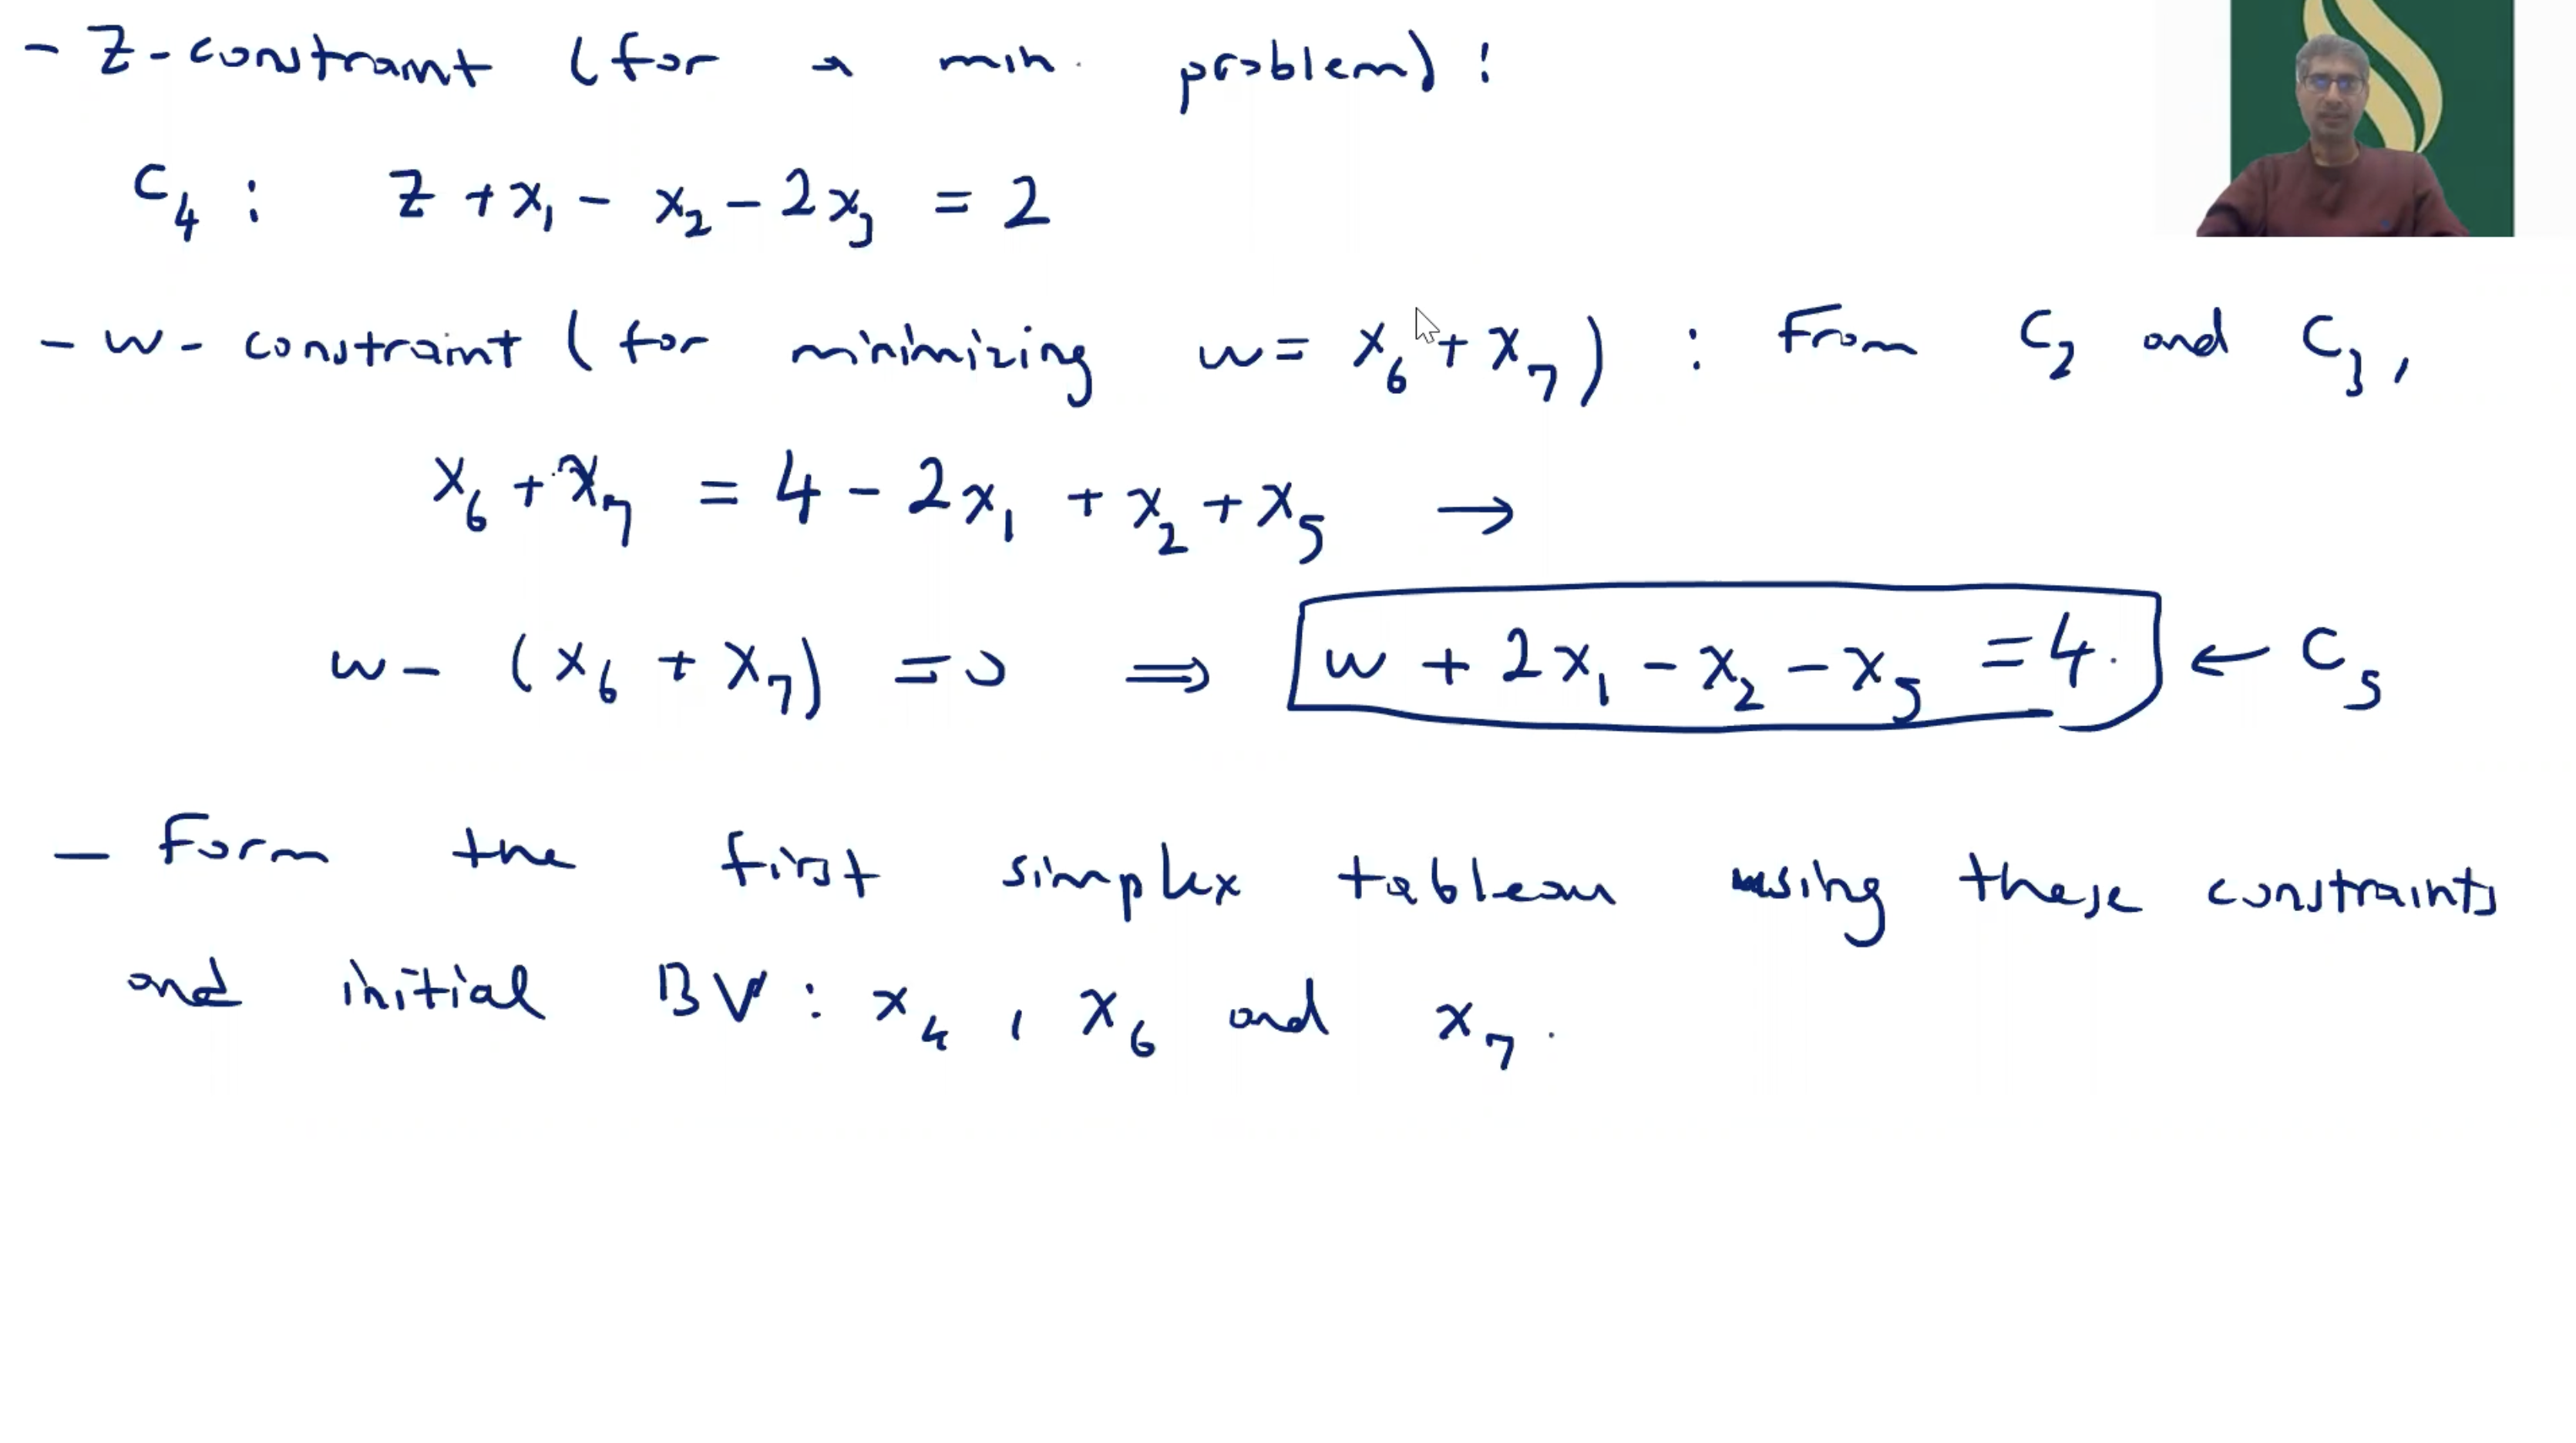 - Z-constraint (for a min. problem) :
C₄ : Z + x₁ - x₂ - 2x₃ = 2
- w-constraint (for minimizing w = x₆ + x₇) : From C₂ and C₃,
x₆ + x₇ = 4 - 2x₁ + x₂ + x₅ →
w - (x₆ + x₇) = 0 ⇒ w + 2x₁ - x₂ - x₅ = 4. ← C₅
- Form the first simplex tableau using these constraints
and initial BV : x₄, x₆ and x₇.